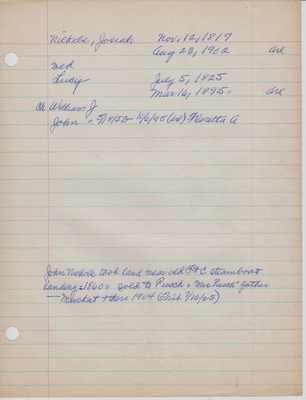 Nickols, Josiah Nov. 12, 1819
Aug 28, 1902 are
med
Lucy July 5, 1825
Mar 16, 1895 are
ch William J
John = 5/ /50 - 10/6/95 (sd) Floretta A
John Nickols took land near old F&C steamboat
landing = 1860 = sold to Punch = Mrs Punch' father
- Muskat + there 1904 (Fish 7/16/25)